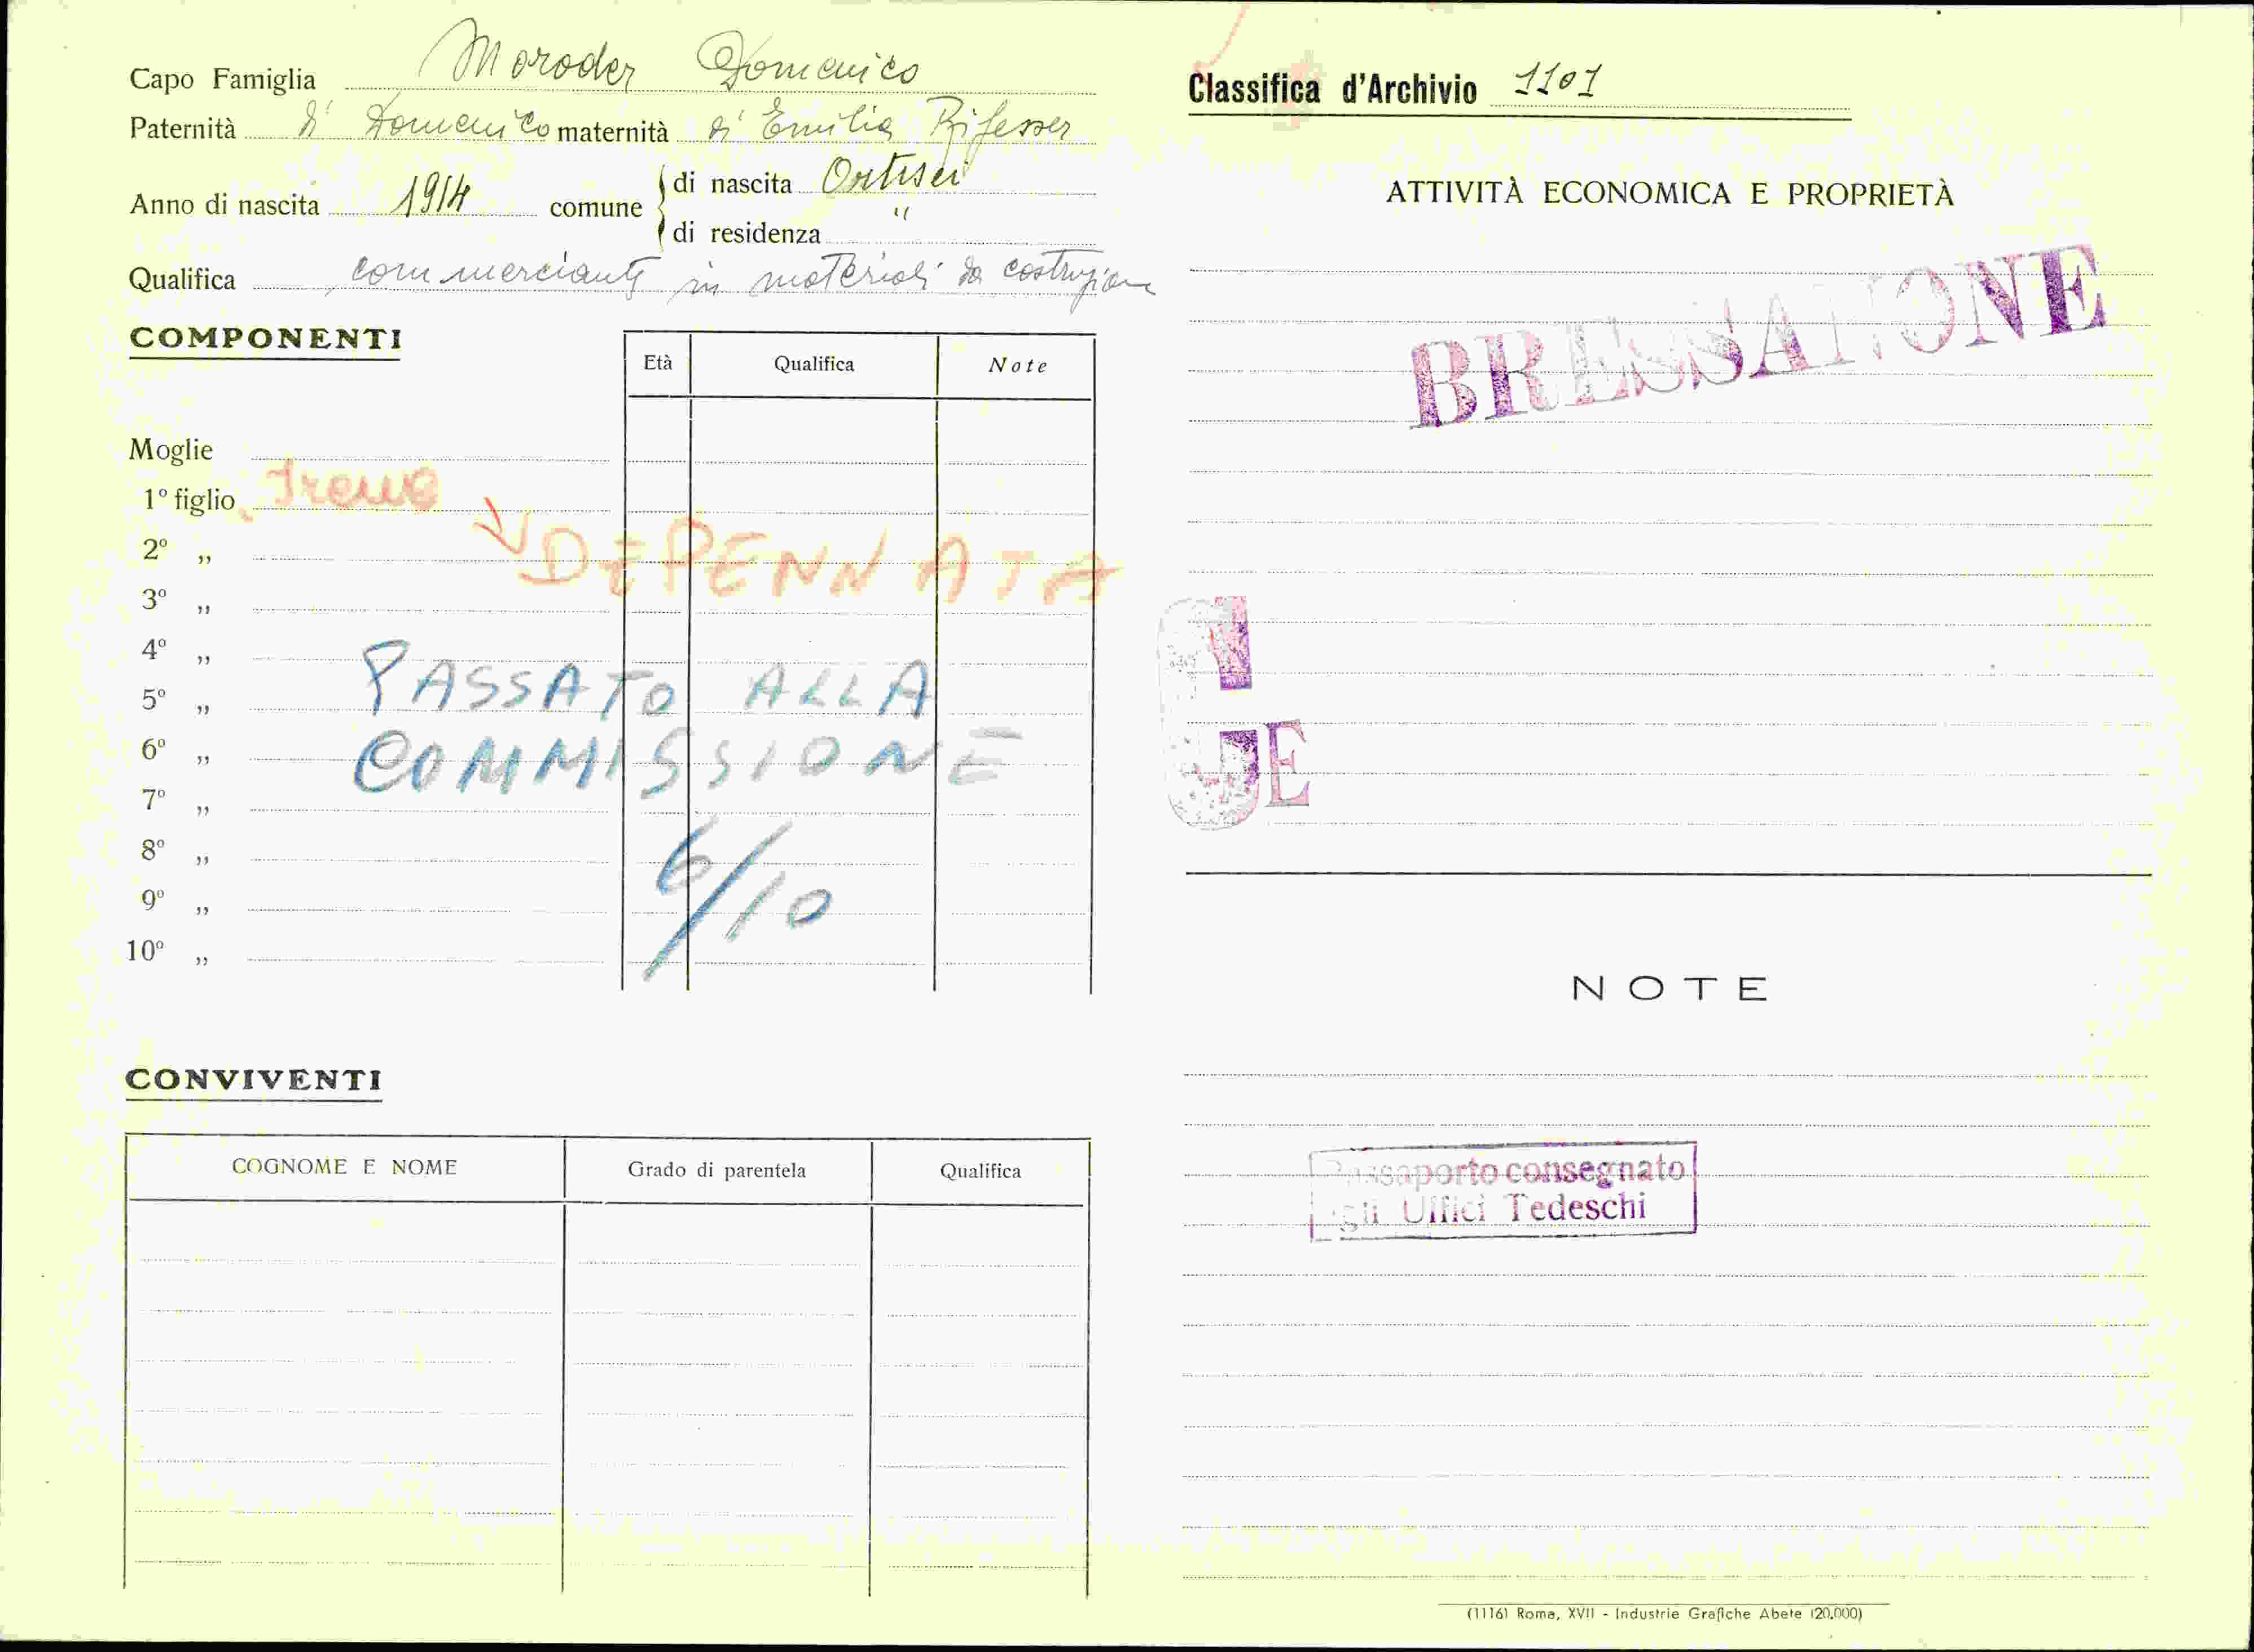 Capo Famiglia Moroder Domenico
Paternità di Domenico maternità di Emilia Rifesser
Anno di nascita 1914 comune di nascita Ortisei
di residenza "
Qualifica commerciante in materiali da costruzione
COMPONENTI
Età Qualifica Note
Moglie
1º figlio Irene
2º „ DEPENNATA
3º „
4º „
5º „ PASSATO ALLA
6º „ COMMISSIONE
7º „
8º „
9º „ 6/10
10º „
CONVIVENTI
COGNOME E NOME Grado di parentela Qualifica
Classifica d'Archivio 1101
ATTIVITÀ ECONOMICA E PROPRIETÀ
BRESSANONE
NOTE
Passaporto consegnato
agli Uffici Tedeschi
(11161 Roma, XVII - Industrie Grafiche Abete (20.000)